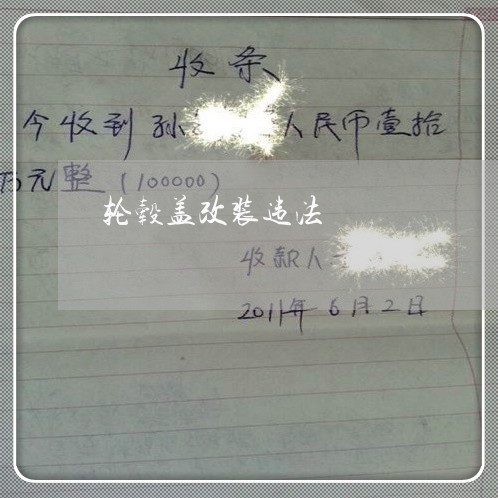 收条
今收到孙人民币壹拾
万元整（100000）
轮毂盖改装违法
收款人
2011年6月2日